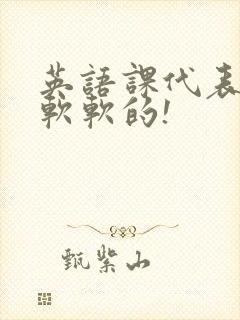 英語課代表
軟軟的!
甄紫山